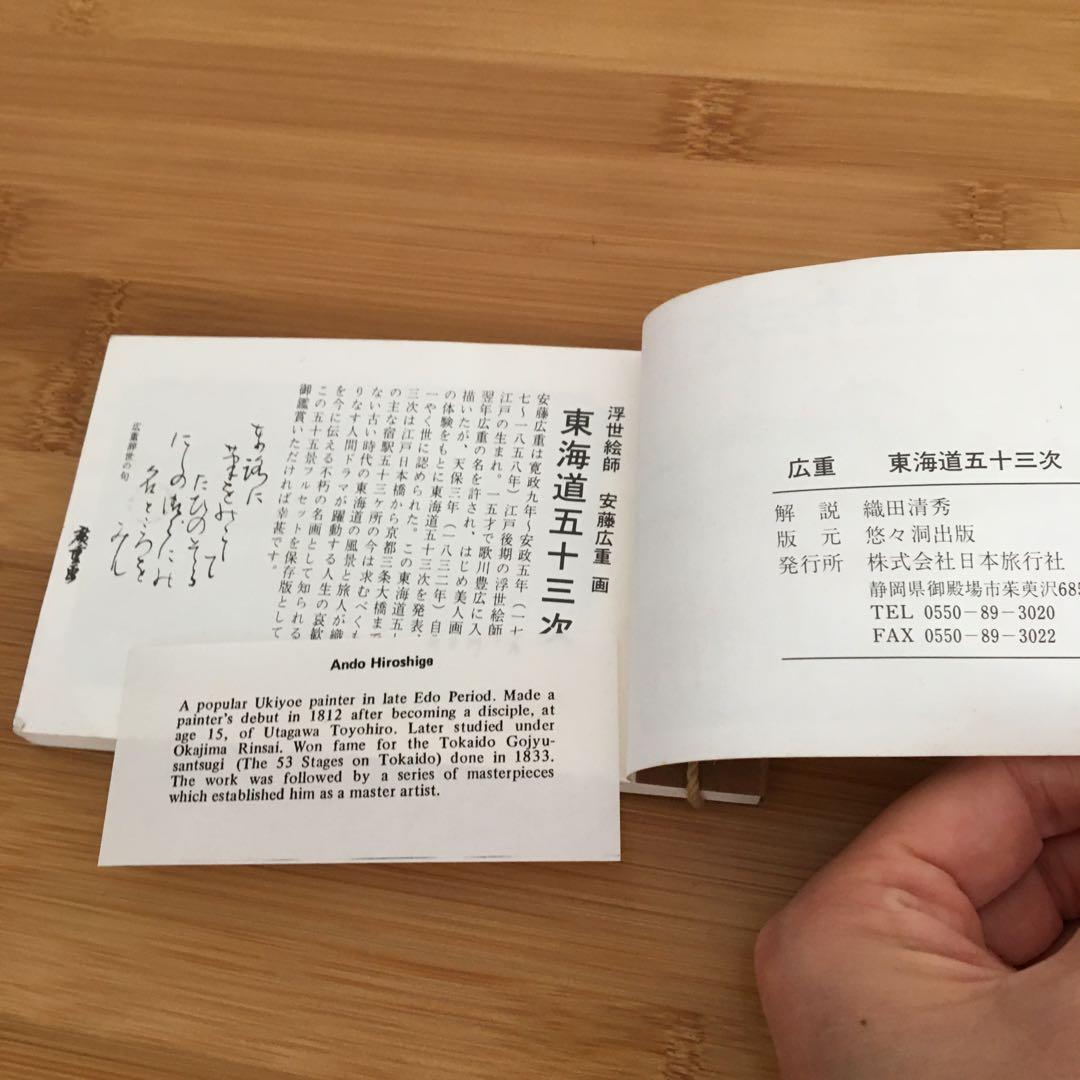 浮世絵師 安藤広重 画
東海道五十三次
安藤広重は寛政九年～安政五年(一七
七～一八五八年)江戸後期の浮世絵師
江戸の生まれ。一五才で歌川豊広に入
翌年広重の名を許され、はじめ美人画
描いたが、天保三年(一八三二年)自
の体験をもとに東海道五十三次を発表、
一やく世に認められた。この東海道五
三次は江戸日本橋から京都三条大橋まで
の主な宿駅五十三ヶ所の今は求むべくも
ない古い時代の東海道の風景と旅人が織
りなす人間ドラマが躍動する人生の哀歓
を今に伝える不朽の名画として知られる
この五十五景フルセットを保存版として
御鑑賞いただければ幸甚です。
東路に
筆をのこして
たひのそら
にしの御くにの
名ところを
みん
広重辞世の句
Ando Hiroshige
A popular Ukiyoe painter in late Edo Period. Made a
painter's debut in 1812 after becoming a disciple, at
age 15, of Utagawa Toyohiro. Later studied under
Okajima Rinsai. Won fame for the Tokaido Gojyu-
santsugi (The 53 Stages on Tokaido) done in 1833.
The work was followed by a series of masterpieces
which established him as a master artist.
広重 東海道五十三次
解 説 織田清秀
版 元 悠々洞出版
発行所 株式会社日本旅行社
静岡県御殿場市茱萸沢685
TEL 0550-89-3020
FAX 0550-89-3022